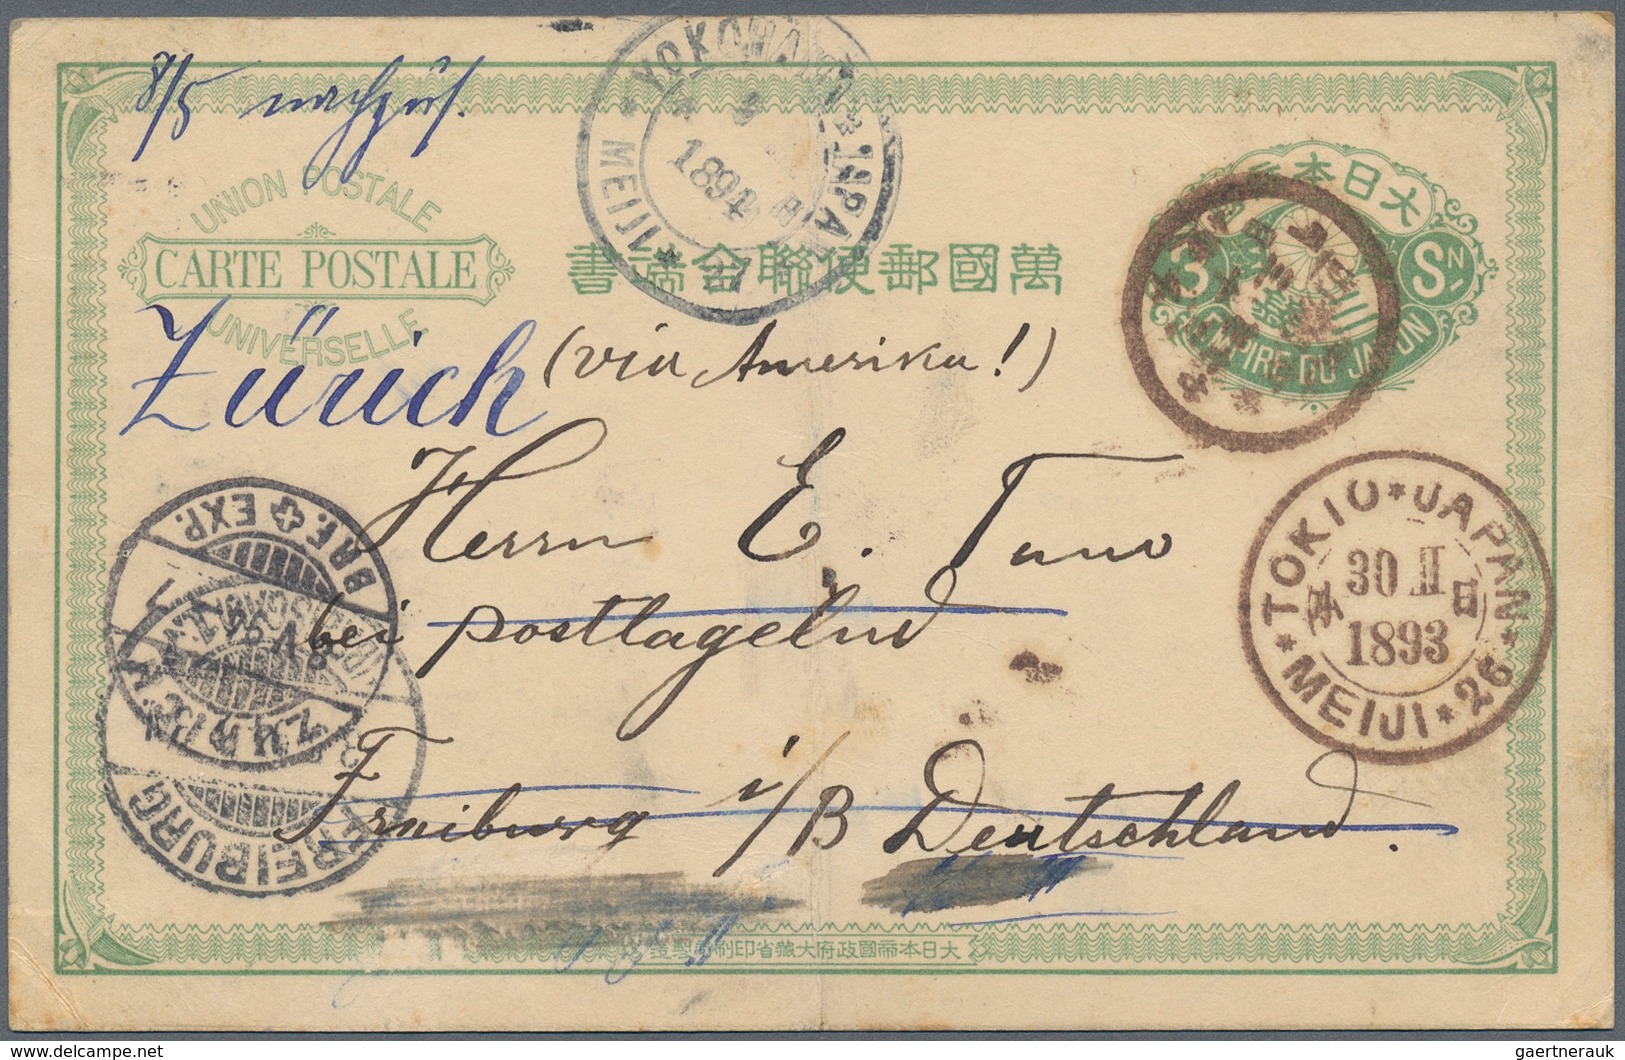 8/5
YOKOHAMA * JAPAN * 27 * MEIJI *
1894
UNION POSTALE
CARTE POSTALE
UNIVERSELLE
萬國郵便聯合端書
大日本帝
3 Sɴ
EMPIRE DU JAPON
Zürich (via Amerika!)
Herrn E.
bei postlagelnd
Freiburg i/B Deutschland.
* TOKIO * JAPAN * 26 * MEIJI
30 III
1893
BRE. EXP.
FREIBURG
大日本帝國政府大藏省印刷局製造
gaertnerauk